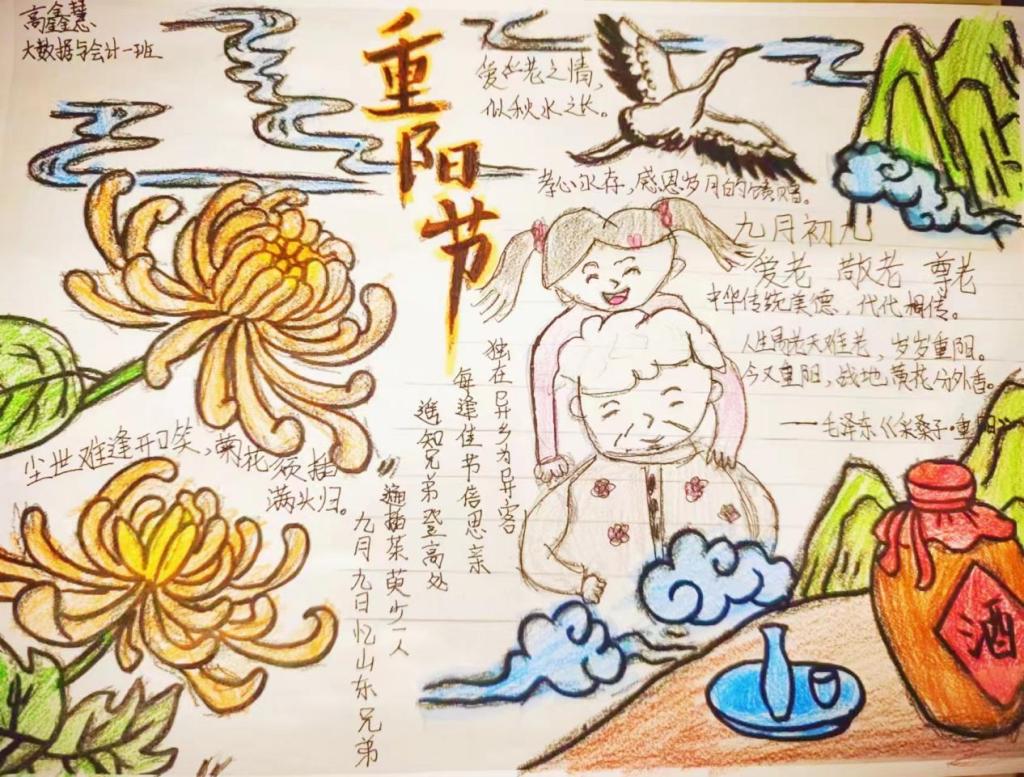 高鑫慧
大数据与会计一班
重阳节
爱老之情,
似秋水之长。
孝心永存,感恩岁月的馈赠。
九月初九
爱老 敬老 尊老
中华传统美德,代代相传。
人生易老天难老,岁岁重阳。
今又重阳,战地黄花分外香。
——毛泽东《采桑子·重
独在异乡为异客
每逢佳节倍思亲
遥知兄弟登高处
遍插茱萸少一人
九月九日忆山东兄弟
尘世难逢开口笑,菊花须插
满头归。
酒